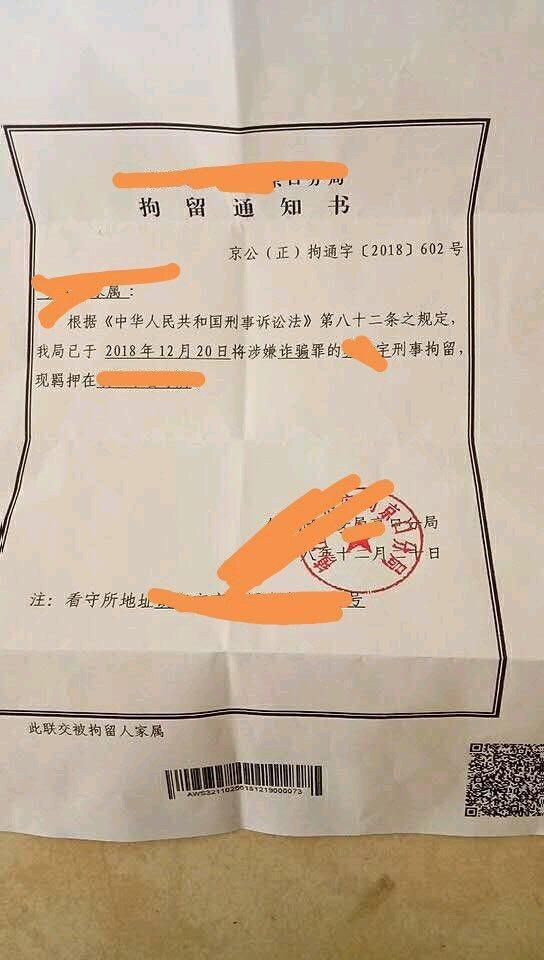 京口分局
拘留通知书
京公（正）拘通字〔2018〕602号
家属：
根据《中华人民共和国刑事诉讼法》第八十二条之规定，
我局已于 2018年12月20日将涉嫌诈骗罪的 宇刑事拘留，
现羁押在
京口分局
八年十二月二十日
京口分局
注：看守所地址 号
此联交被拘留人家属